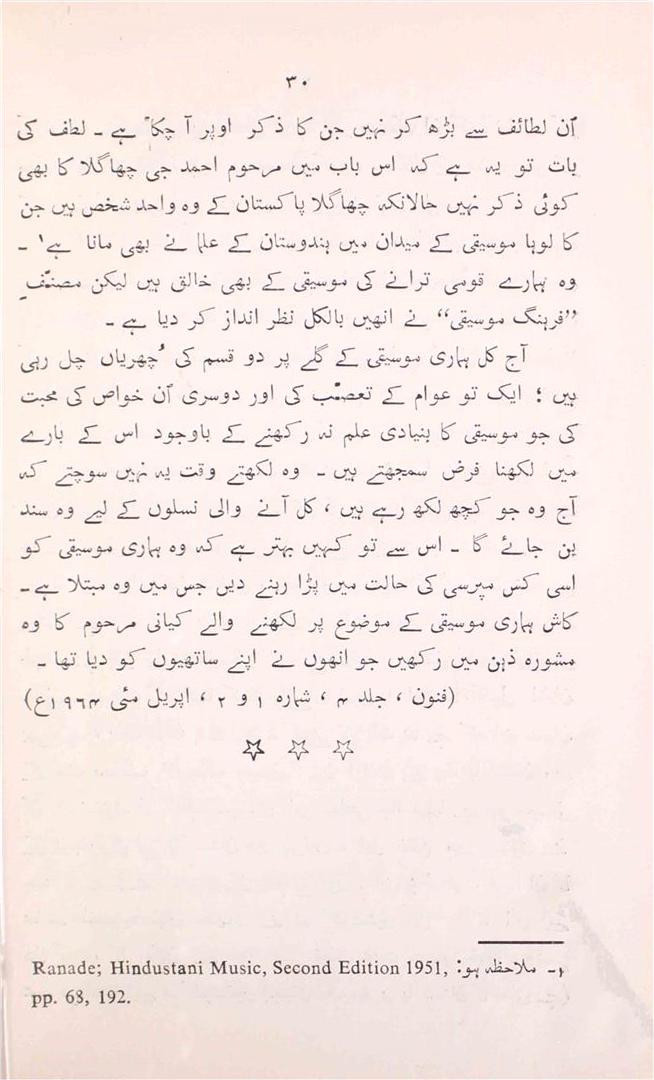 ۳۰
اُن لطائف سے بڑھ کر نہیں جن کا ذکر اوپر آ چکا ہے ۔ لطف کی
بات تو یہ ہے کہ اس باب میں مرحوم احمد جی چھاگلا کا بھی
کوئی ذکر نہیں حالانکہ چھاگلا پاکستان کے وہ واحد شخص ہیں جن
کا لوہا موسیقی کے میدان میں ہندوستان کے علما نے بھی مانا ہے۱ ۔
وہ ہمارے قومی ترانے کی موسیقی کے بھی خالق ہیں لیکن مصنّفِ
”فرہنگ موسیقی“ نے انھیں بالکل نظر انداز کر دیا ہے ۔
آج کل ہماری موسیقی کے گلے پر دو قسم کی چُھریاں چل رہی
ہیں ؛ ایک تو عوام کے تعصّب کی اور دوسری اُن خواص کی محبت
کی جو موسیقی کا بنیادی علم نہ رکھنے کے باوجود اس کے بارے
میں لکھنا فرض سمجھتے ہیں ۔ وہ لکھتے وقت یہ نہیں سوچتے کہ
آج وہ جو کچھ لکھ رہے ہیں ، کل آنے والی نسلوں کے لیے وہ سند
بن جائے گا ۔ اس سے تو کہیں بہتر ہے کہ وہ ہماری موسیقی کو
اسی کس مپرسی کی حالت میں پڑا رہنے دیں جس میں وہ مبتلا ہے ۔
کاش ہماری موسیقی کے موضوع پر لکھنے والے کیانی مرحوم کا وہ
مشورہ ذہن میں رکھیں جو انھوں نے اپنے ساتھیوں کو دیا تھا ۔
(فنون ، جلد ۴ ، شمارہ ۱ و ۲ ، اپریل مئی ۱۹۶۴ع)
۱۔ ملاحظہ ہو: Ranade; Hindustani Music, Second Edition 1951,
pp. 68, 192.